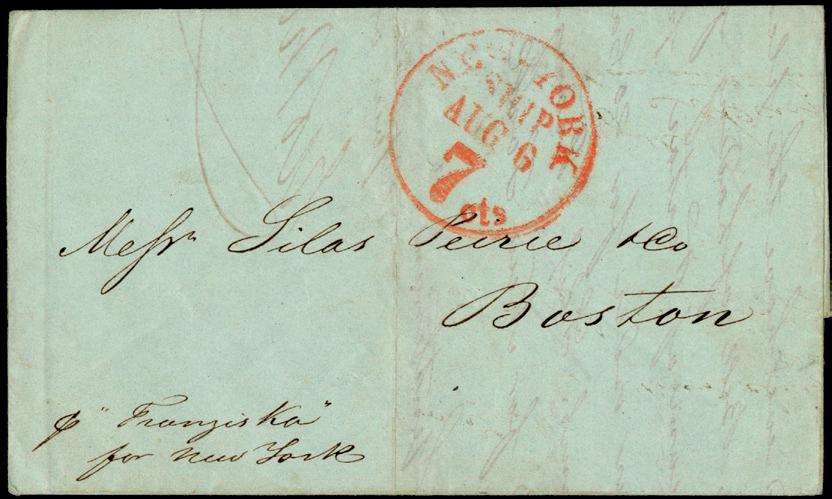 NEW-YORK
SHIP
AUG 6
7
cts
Messrs Silas Peirce & Co
Boston
p "Franziska"
for New York